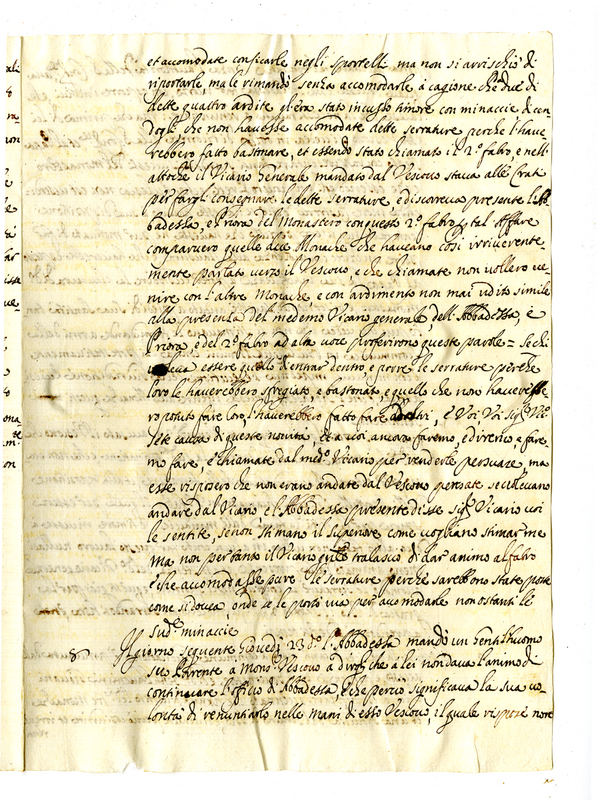 et accomodate conficarle negli sportelli ma non si arrischiò di
riportarle, ma le rimandò senza accomodarle à cagione che due di
dette quattro ardite gl'era stato incusso timore con minaccie dicen-
dogli che non havesse accomodate dette serrature perche l'have
rebbero fatto bastonare, et essendo stato chiamato il 2.º fabro, e nell'
altoche il Vicario Generale mandato dal Vescovo stava alle Grati
per fargli consegnare le dette serrature, e discorreva presente l'Ab-
badessa, e Priora del Monastero con questo 2.º fabro p tal affare
comparvero quelle due Monache che havevano così irriverente
mente parlato verso il Vescovo, e che chiamate non vollero ve-
nire con l'altre Monache, e con ardimento non mai udito simile
alla presenza del medemo Vicario generale, dell'Abbadessa, e
Priora, e del 2.º fabro ad alta voce proferirono queste parole = Se chi
voleva essere quello d'entrar dentro, e porre le serrature perche
loro le haverebbero sfregiato, e bastonato, e quello che non haverebbe-
ro potuto fare loro, l'haverebbero fatto fare ad altri, e Voi Voi Sig.r Vic.º
sete causa di queste novità, et a voi ancora faremo, e diremo, e fare-
mo fare, e chiamate dal med.º Vicario per renderle persuase, ma
esse risposero che non erano andate dal Vescovo pensate se volevano
andare dal Vicario e l'Abbadessa presente disse Sig.r Vicario voi
le sentite, se non stimano il Superiore come vogliano stimar me
ma non per tanto il Vicario tralasciò di dar animo al fabro
e che accomodasse pure le serrature perche sarebbono state poste
come si doveva, onde se le portò via per accomodarle non ostanti le
sud.e minaccie
8 Il giorno seguente Giovedì 23 d.º l'Abbadessa mandò un Gentilhuomo
suo Parente a Mons.r Vescovo à dirgli che a lei non dava l'animo di
continuare l'officio di Abbadessa, e che perciò significava la sua vo-
lontà di renuntiarlo nelle mani di esso Vescovo, il quale rispose non